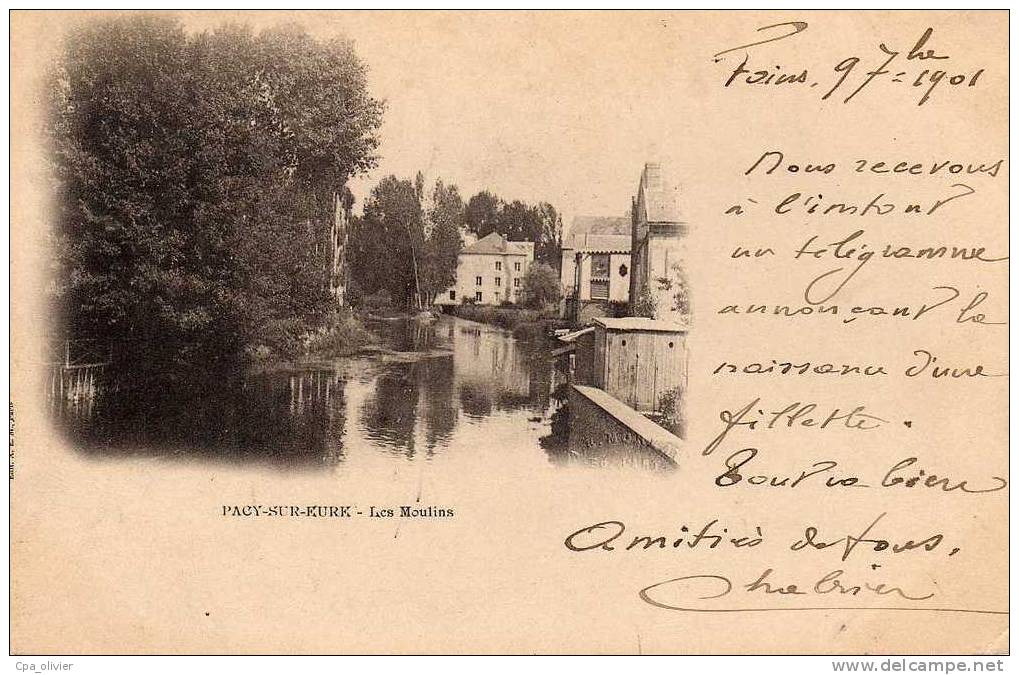 9 7bre 1901
Nous recevons
à l'instant
un télégramme
annonçant la
naissance d'une
fillette.
Tout va bien
Amitiés de tous.
Chabrier
PACY-SUR-EURE - Les Moulins
Cpa_olivier
www.delcampe.net